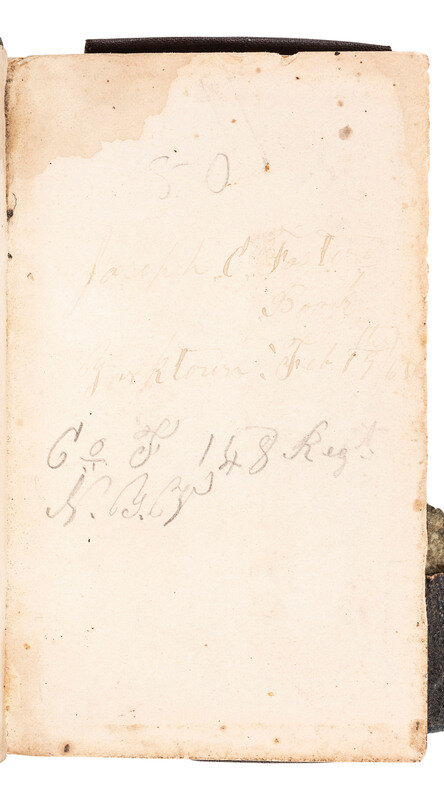 50
Joseph C.
Book
Yorktown. Feb
Co F 148 Regt
N.Y.